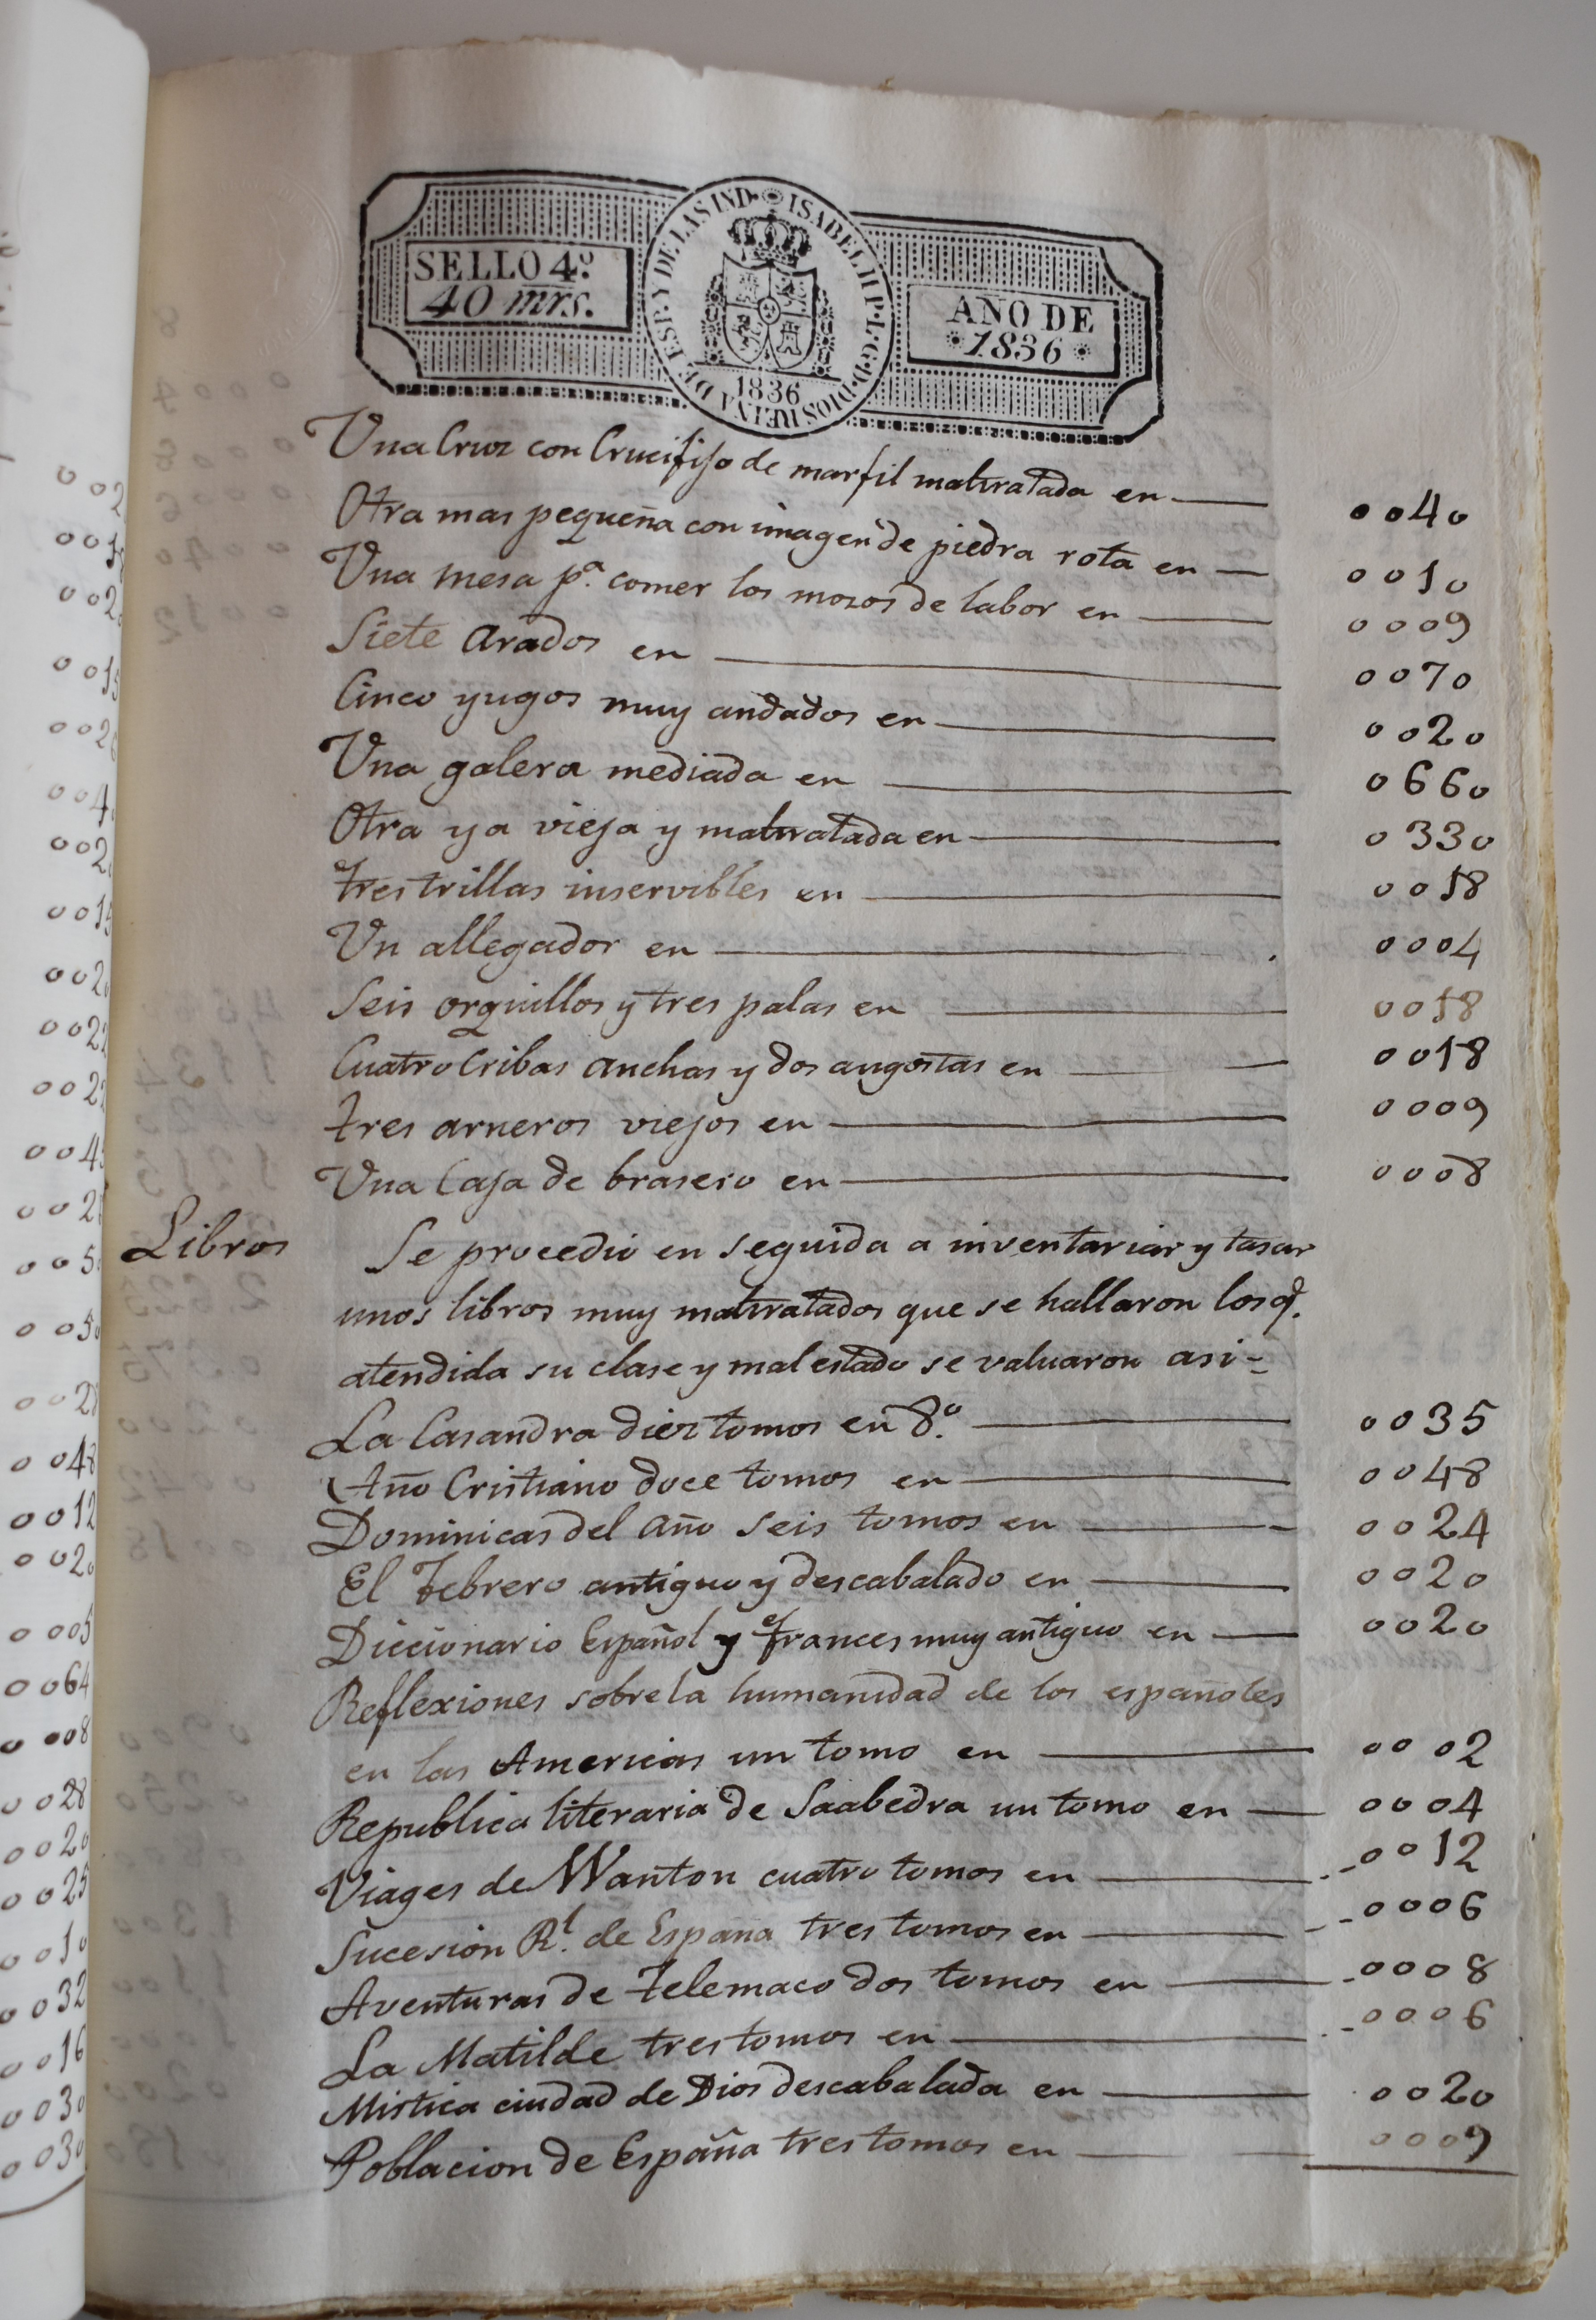 SELLO 4º
40 mrs.
ISABEL II P. L. G. D. DIOS REINA DE ESP. Y DE LAS IND.
1836
AÑO DE
1836
Una Cruz con Crucifijo de marfil maltratada en 0040
Otra mas pequeña con imagen de piedra rota en 0010
Una mesa pª. comer los mozos de labor en 0009
Siete arados en 0070
Cinco yugos muy andados en 0020
Una galera mediada en 0660
Otra ya vieja y maltratada en 0330
tres trillas inservibles en 0018
Un allegador en 0004
Seis orquillos y tres palas en 0018
Cuatro Cribas anchas y dos angostas en 0018
tres arneros viejos en 0009
Una Caja de brasero en 0008
Libros
Se procedio en seguida a inventariar y tasar
unos libros muy maltratados que se hallaron los q.
atendida su clase y mal estado se valuaron asi-
La Casandra diez tomos en 8º. 0035
Año Cristiano doce tomos en 0048
Dominicas del año seis tomos en 0024
El Febrero antiguo y descabalado en 0020
Diccionario Español y frances muy antiguo en 0020
Reflexiones sobre la humanidad de los españoles
en las Americas un tomo en 0002
Republica literaria de Saabedra un tomo en 0004
Viages de Wanton cuatro tomos en 0012
Sucesion Rl. de España tres tomos en 0006
Aventuras de Telemaco dos tomos en 0008
La Matilde tres tomos en 0006
Mistica ciudad de Dios descabalada en 0020
Poblacion de España tres tomos en 0009